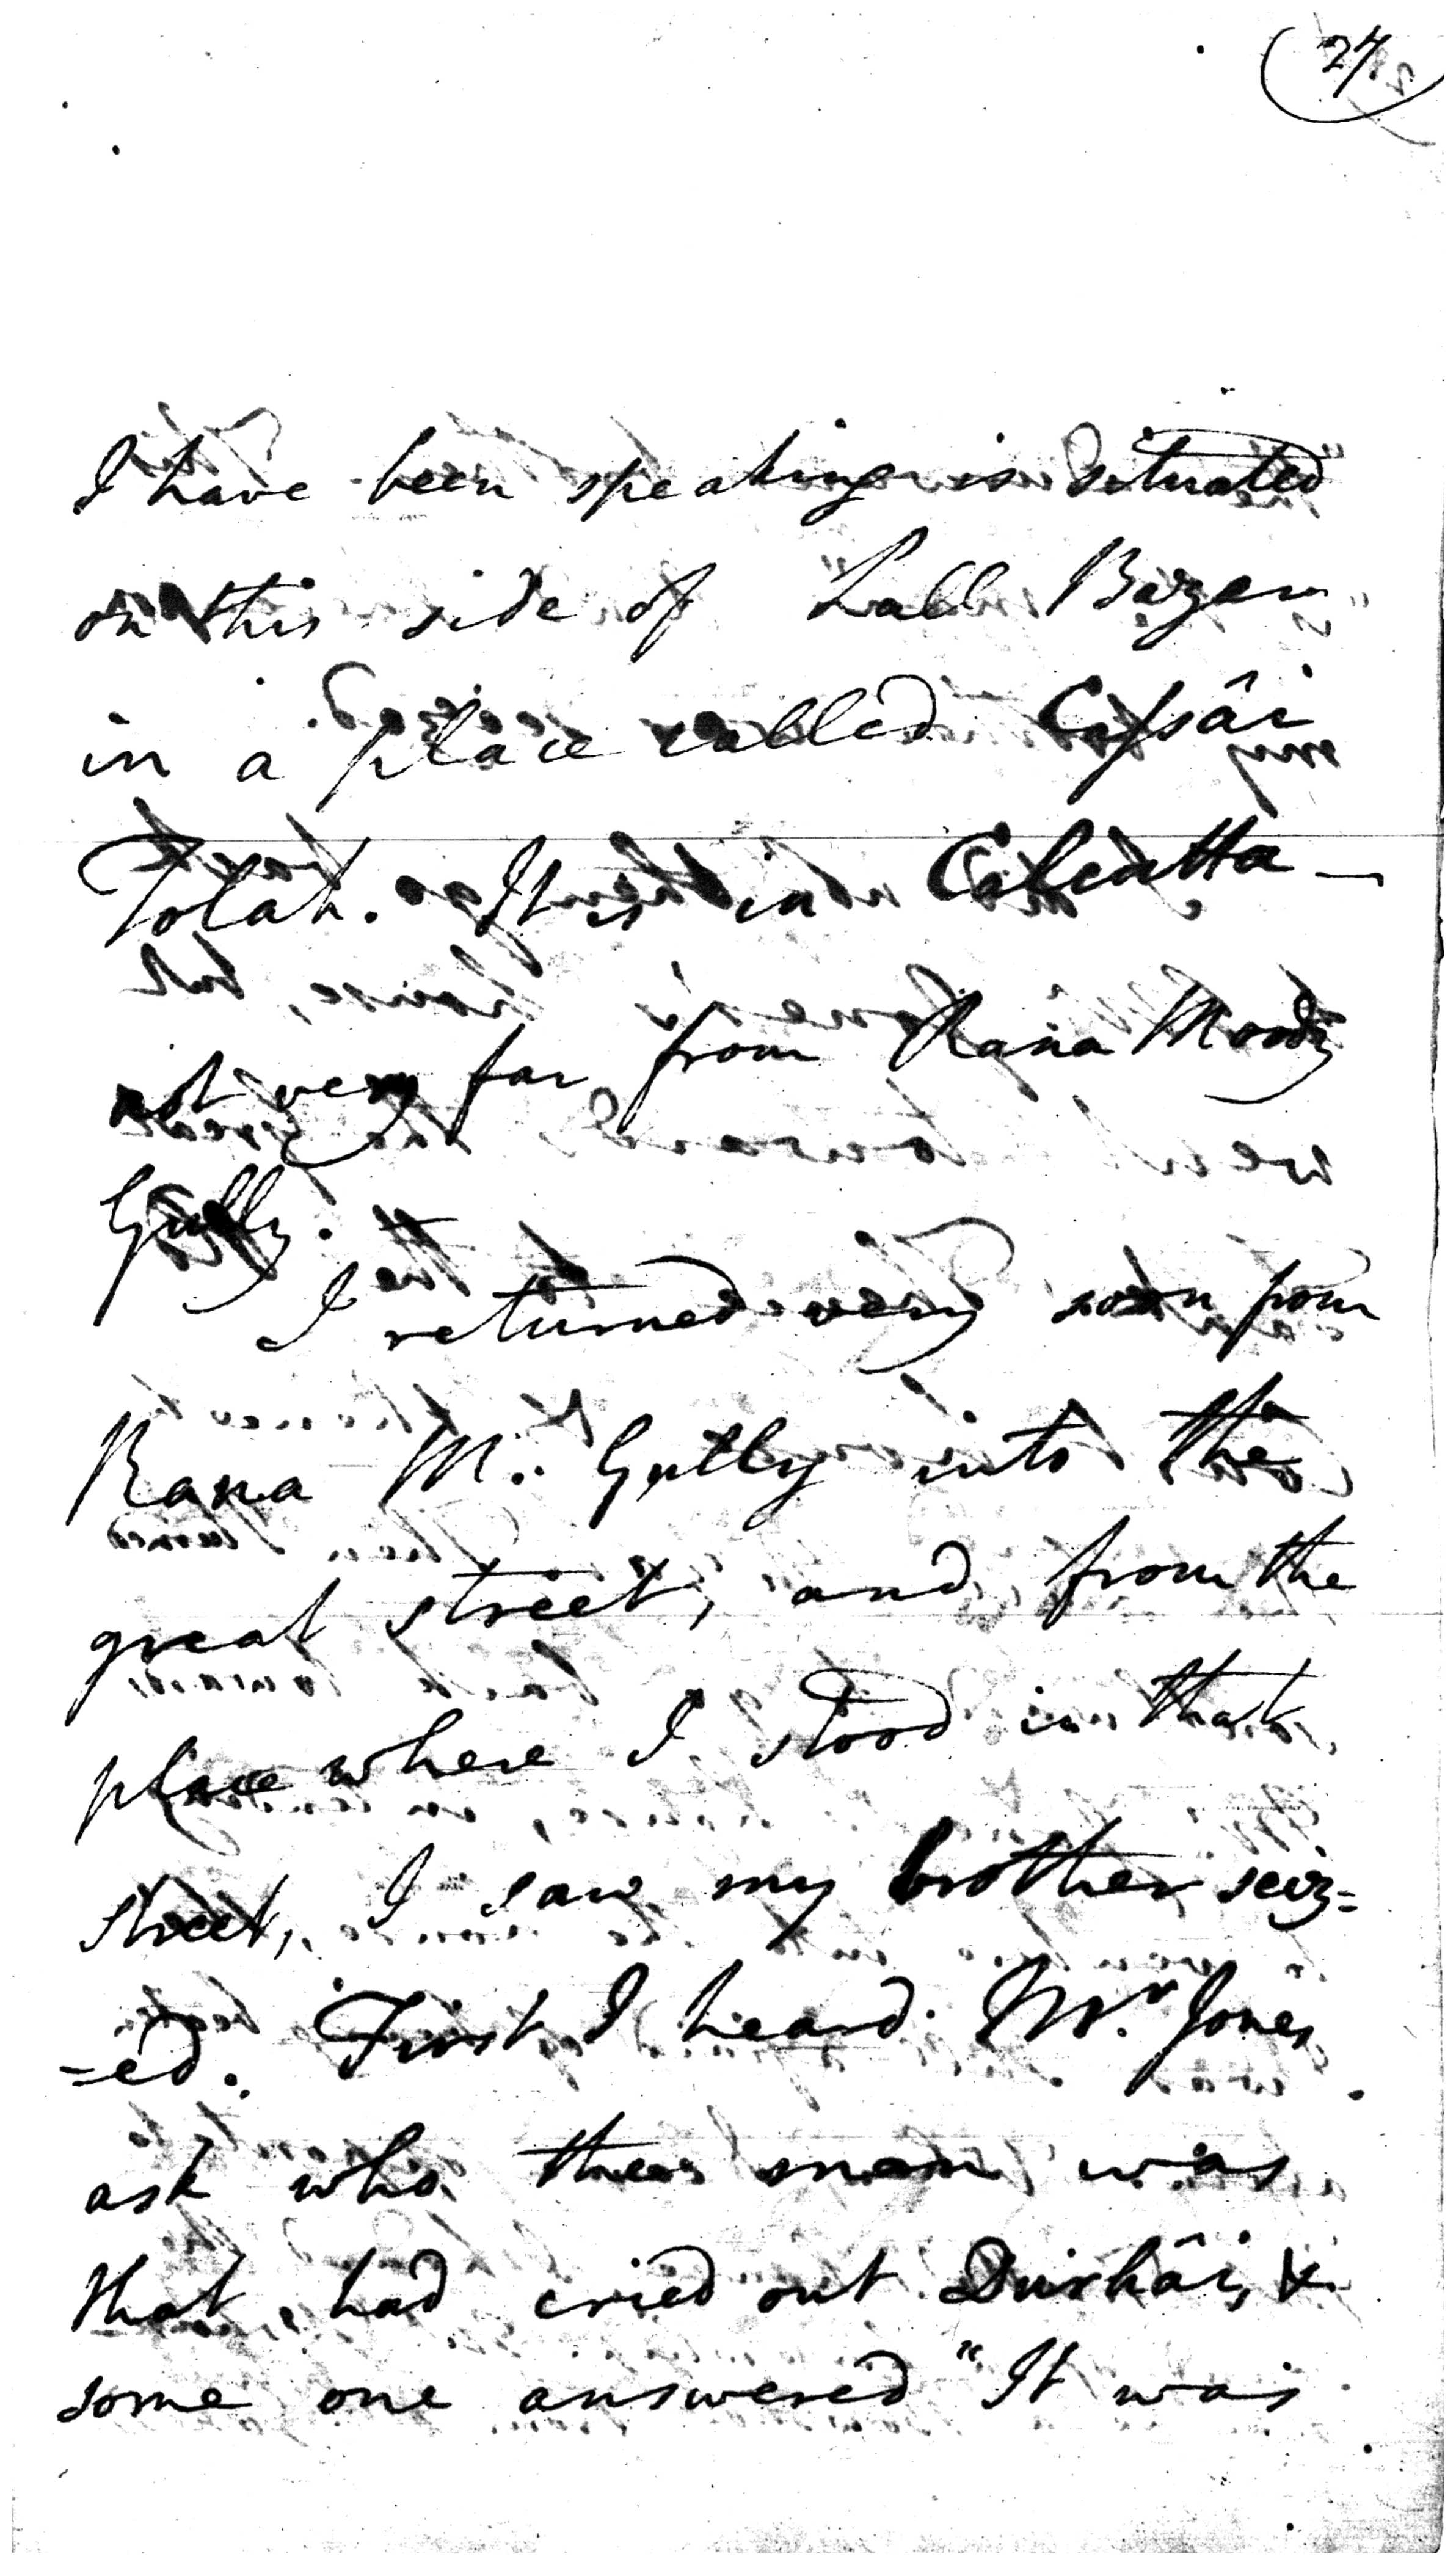 27
I have been speaking is situated
on this side of Lall Bazar
in a place called Cassâi
Tolah. It is in Calcutta —
not very far from Rana Moody
Gully.
I returned very soon from
Rana M. Gully into the
great street, and from the
place where I stood in that
street, I saw my brother seiz=
=ed. First I heard Mr. Jones
ask who the man was
that had cried out Duhâi, &
some one answered "It was